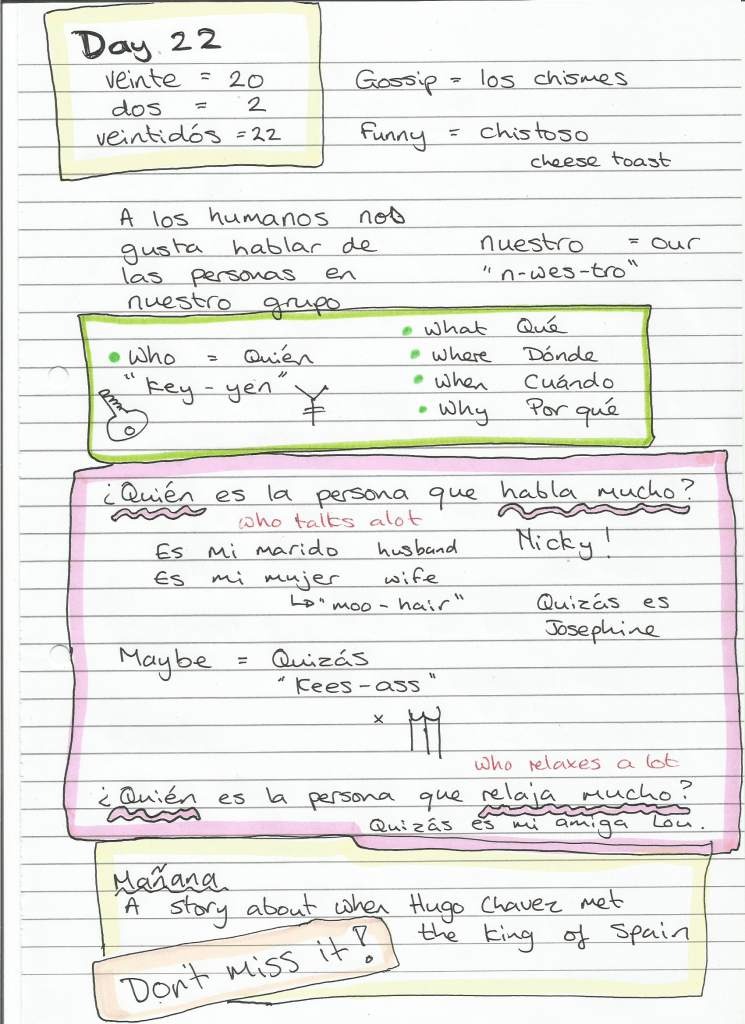 Day 22
veinte = 20
dos = 2
veintidós = 22
Gossip = los chismes
Funny = chistoso
cheese toast
A los humanos nos
gusta hablar de
las personas en
nuestro grupo
nuestro = our
"n-wes-tro"
• Who = Quién
"key-yen"
• What Qué
• Where Dónde
• When Cuándo
• Why Por qué
¿Quién es la persona que habla mucho?
who talks alot
Es mi marido husband
Es mi mujer wife
↳ "moo-hair"
Nicky!
Quizás es
Josephine
Maybe = Quizás
"Kees-ass"
x
who relaxes a lot
¿Quién es la persona que relaja mucho?
Quizás es mi amiga Lou.
Mañana
A story about when Hugo Chavez met
the King of Spain
Don't miss it!